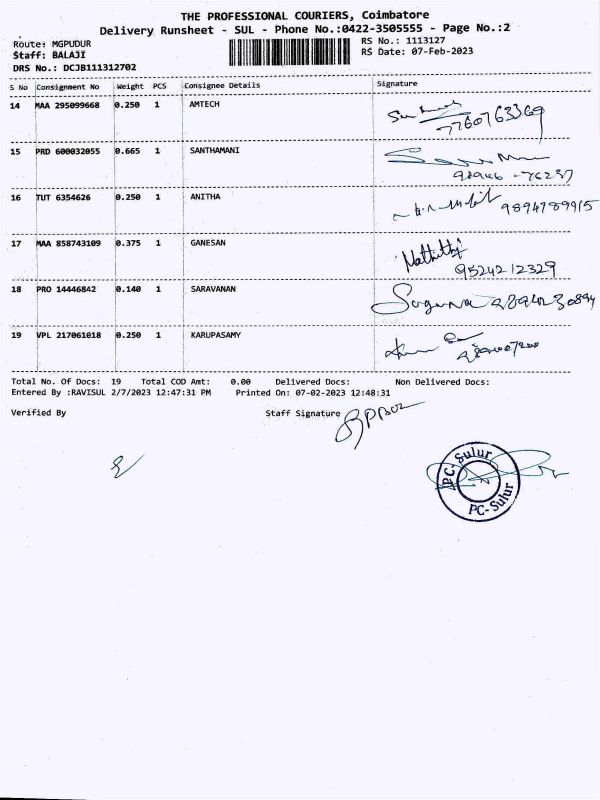 THE PROFESSIONAL COURIERS, Coimbatore
Delivery Runsheet - SUL - Phone No.:0422-3505555 - Page No.:2
Route: MGPUDUR
RS No.: 1113127
Staff: BALAJI
RS Date: 07-Feb-2023
DRS No.: DCJB111312702
S No Consignment No Weight PCS Consignee Details Signature
14 MAA 295099668 0.250 1 AMTECH
7760763369
15 PRD 600032055 0.665 1 SANTHAMANI
98946-76237
16 TUT 6354626 0.250 1 ANITHA
9894789915
17 MAA 858743109 0.375 1 GANESAN
9524212329
18 PRO 14446842 0.140 1 SARAVANAN
Suguna
19 VPL 217061018 0.250 1 KARUPASAMY
Total No. Of Docs: 19 Total COD Amt: 0.00 Delivered Docs: Non Delivered Docs:
Entered By :RAVISUL 2/7/2023 12:47:31 PM Printed On: 07-02-2023 12:48:31
Verified By Staff Signature
PC-Sulur
PC-Sulur